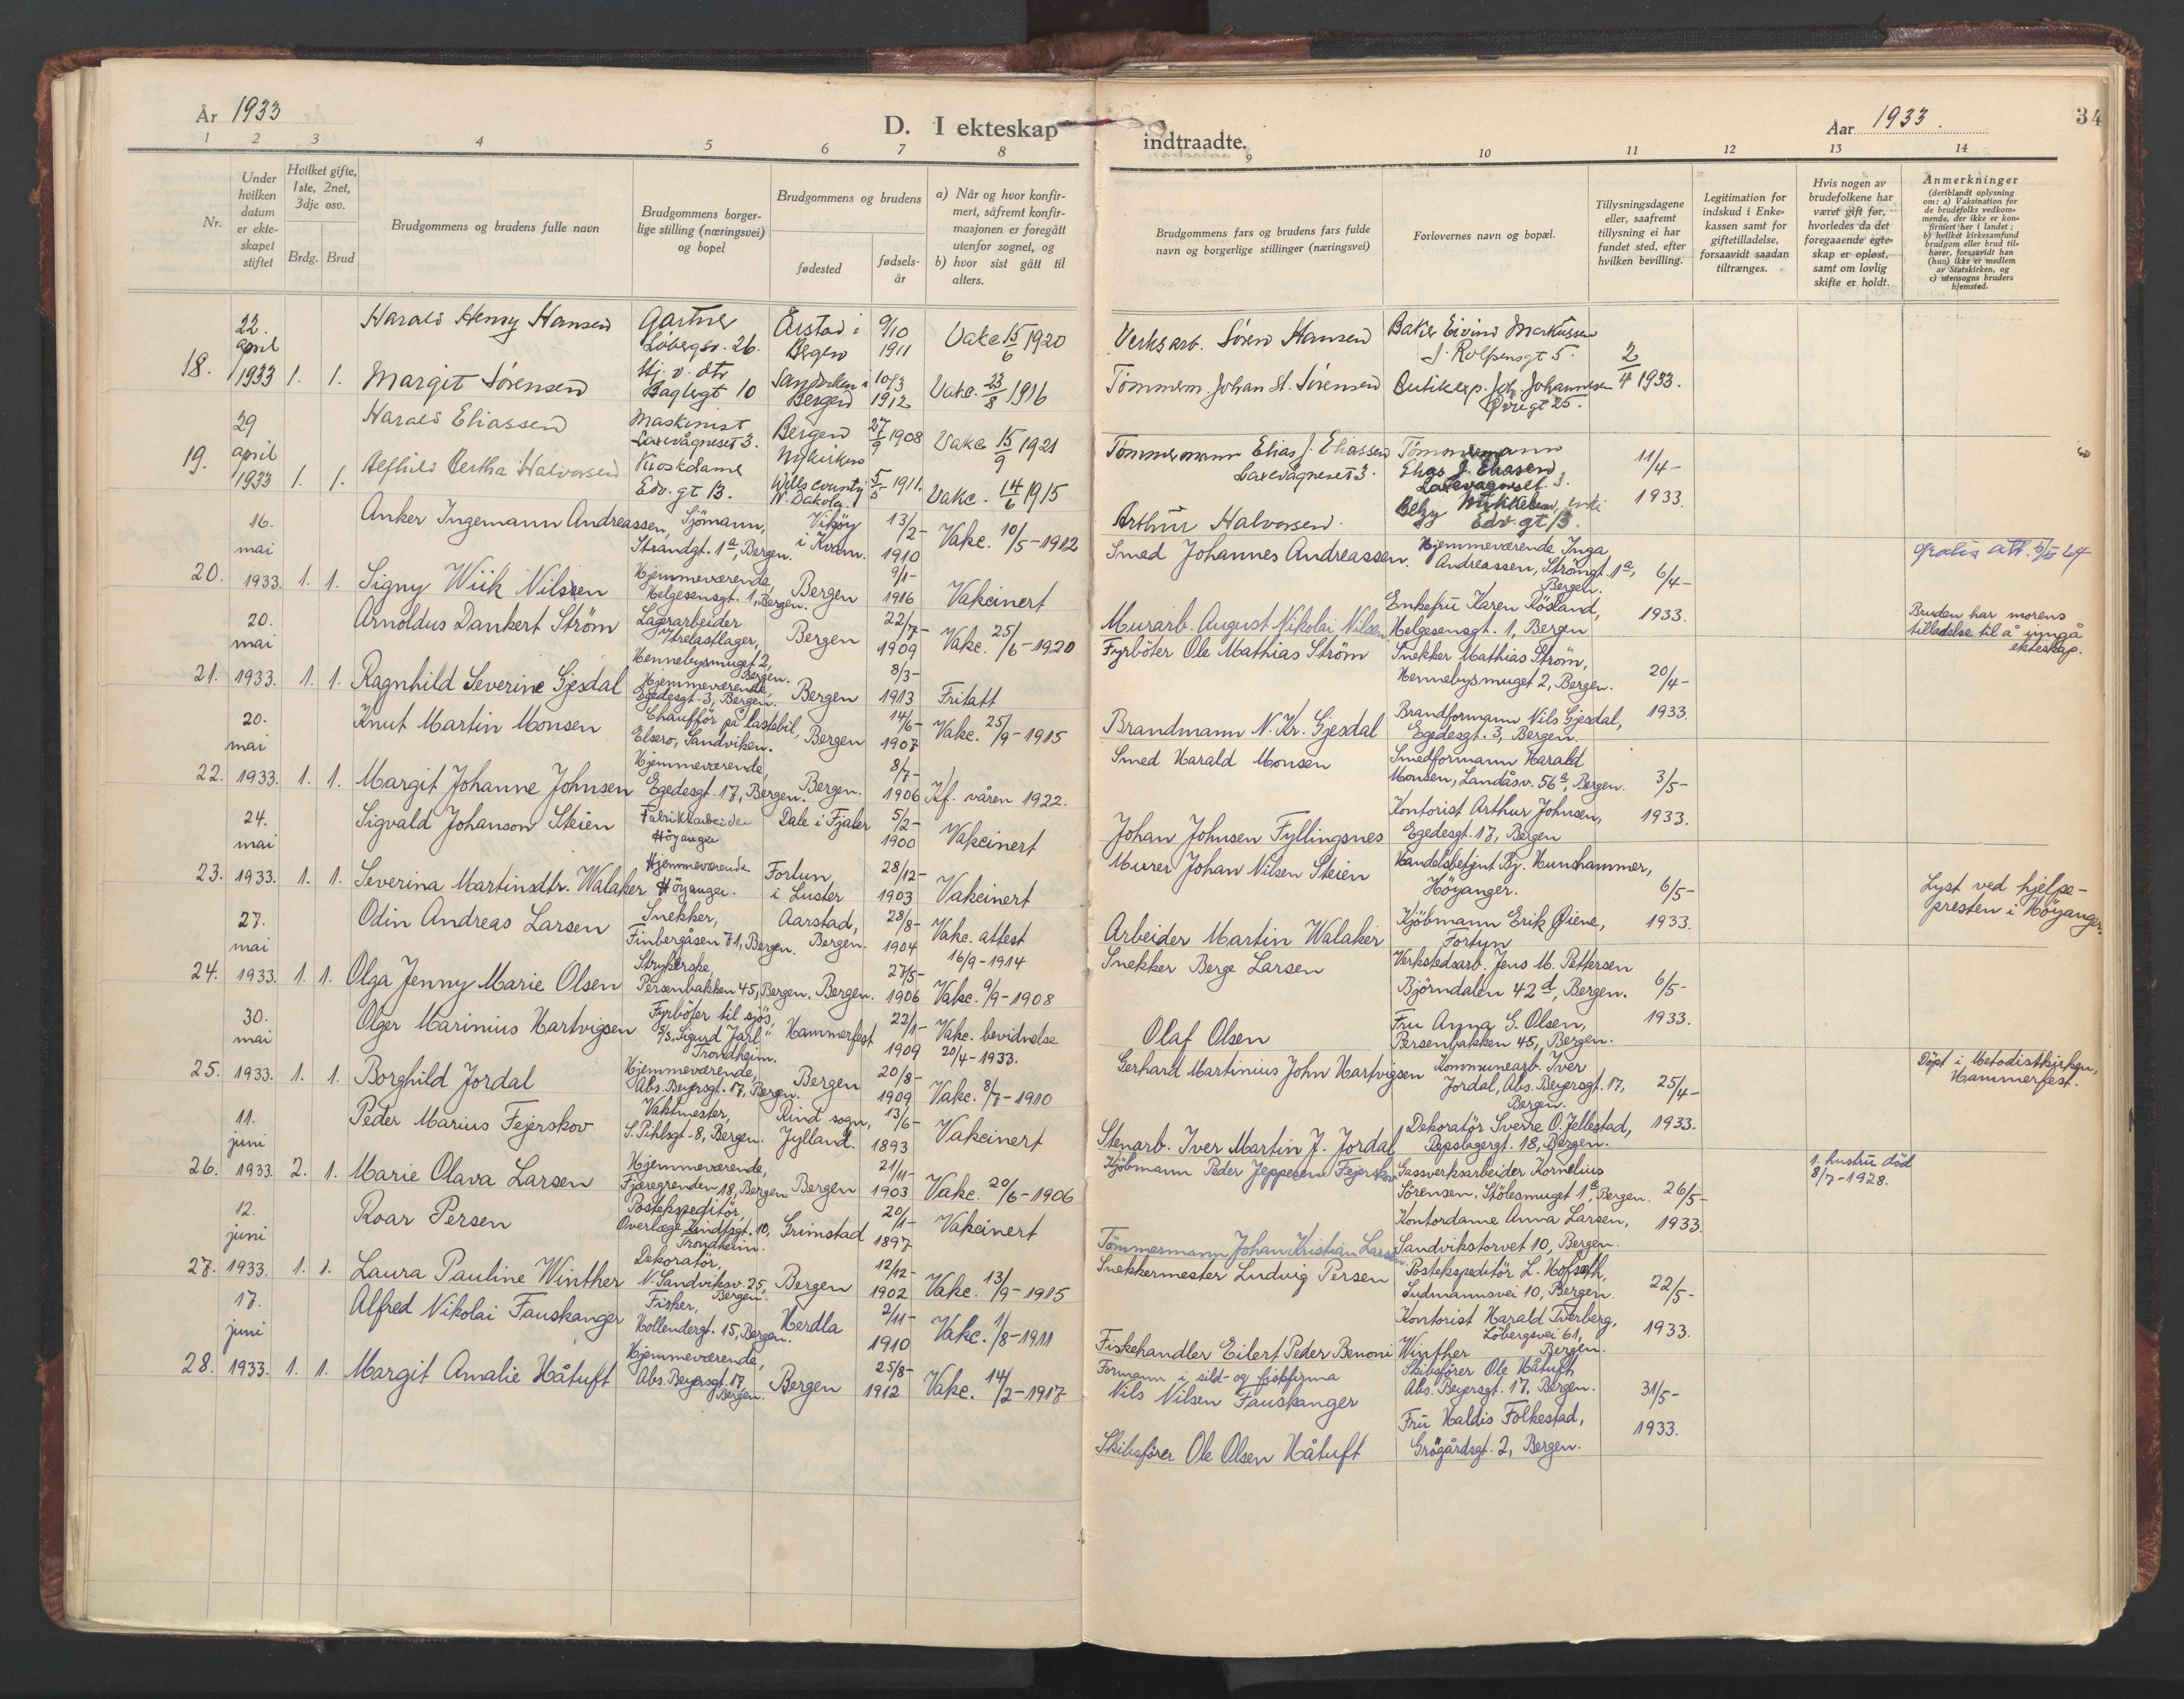 År 1933
D. I ekteskap
1 2 3 4 5 6 7 8
Nr.
Under hvilken datum er ekteskapet stiftet
Hvilket gifte, 1ste, 2net, 3dje osv.
Brdg. Brud
Brudgommens og brudens fulle navn
Brudgommens borgerlige stilling (næringsvei) og bopel
Brudgommens og brudens
fødested
fødselsår
a) Når og hvor konfirmert, såfremt konfirmasjonen er foregått utenfor sognet, og
b) hvor sist gått til alters.
22. april 1933
18. 1. 1.
Harald Henry Hansen
Gartner Løbergsv. 26.
Årstad i Bergen
9/10 1911
Vakc 15/6 1920
Margit Sørensen
Hj. v. dtr
10
Sandviken i Bergen
10/3 1912
Vakc. 23/8 1916
29 april 1933
19. 1. 1.
Harald Eliassen
Maskinist Laxevågneset 3.
Bergen Nykirken
27/9 1908
Vakc 15/9 1921
Alfhild Bertha Halvorsen
Kioskdame Edv. gt 13.
Wills County N. Dakota
5/5 1911.
Vakc. 14/6 1915
16. mai 1933.
20. 1. 1.
Anker Ingemann Andreassen,
Sjömann, Strandgt. 1a, Bergen.
Viköy i Kvam.
13/2- 1910
Vakc. 10/5-1912
Signy Wiik Nilssen
Hjemmeværende, Helgesensgt. 1, Bergen.
Bergen
9/1- 1916
Vakcinert
20. mai 1933.
21. 1. 1.
Arnoldus Dankert Ström
Lagerarbeider Trelastlager, Hennebysmuget 2, Bergen.
Bergen
22/7- 1909
Vakc. 25/6-1920
Ragnhild Severine Gjesdal
Hjemmeværende, Egedesgt. 3, Bergen.
Bergen
8/3- 1913
Fritatt
20. mai 1933.
22. 1. 1.
Knut Martin Monsen
Chaufför på lastebil, Elsero, Sandviken.
Bergen
14/6- 1907
Vakc. 25/9-1915
Margit Johanne Johnsen
Hjemmeværende, Egedesgt. 17, Bergen.
Bergen.
8/7- 1906
Kf. våren 1922.
24. mai 1933.
23. 1. 1.
Sigvald Johanson Steien
Fabrikkarbeider Höyanger
Dale i Fjaler
5/2- 1900
Vakcinert
Severina Martinsdtr. Walaker
Hjemmeværende Höyanger.
Fortun, i Luster
28/12- 1903
Vakcinert
27. mai 1933.
24. 1. 1.
Odin Andreas Larsen
Snekker, Finbergåsen 71, Bergen.
Aarstad, Bergen.
28/8- 1904
Vakc. attest 16/9-1914
Olga Jenny Marie Olsen
Strykerske, Persenbakken 45, Bergen.
Bergen.
27/5- 1906
Vakc. 9/9-1908
30. mai 1933.
25. 1. 1.
Olger Marinius Hartvigsen
Fyrböter til sjös, S/S. "Sigurd Jarl" Trondheim.
Hammerfest
22/1- 1909
Vakc. bevidnelse 20/4-1933.
Borghild Jordal
Hjemmeværende, Abs. Beyersgt. 17, Bergen.
Bergen
20/8- 1909
Vakc. 8/7-1910
11. juni 1933.
26. 2. 1.
Peder Marius Fejerskov
Vaktmester, S. Pihlsgt. 8, Bergen.
Rind sogn, Jylland.
13/6- 1893
Vakcinert
Marie Olava Larsen
Hjemmeværende, Fjæregrenden 18, Bergen
Bergen
21/11- 1903
Vakc. 20/6-1906
12. juni 1933.
27. 1. 1.
Roar Persen
Postekspeditör, Overlæge Kindtsgt. 10, Trondheim.
Grimstad
20/1- 1897
Vakcinert
Laura Pauline Winther
Dekoratör, N. Sandviksv. 25, Bergen.
Bergen
12/12- 1902
Vakc. 13/9-1915
17. juni 1933.
28. 1. 1.
Alfred Nikolai Fauskanger
Fisker, Hollendergt. 15, Bergen.
Herdla
2/11- 1910
Vakc. 1/8-1911
Margit Amalie Håtuft
Hjemmeværende, Abs. Beyersgt. 17, Bergen.
Bergen
25/8- 1912
Vakc. 14/2-1917
indtraadte.
Aar 1933.
34
9 10 11 12 13 14
Brudgommens fars og brudens fars fulde navn og borgerlige stillinger (næringsvei)
Forlovernes navn og bopæl.
Tillysningsdagene eller, saafremt tillysning ei har fundet sted, efter hvilken bevilling.
Legitimation for indskud i Enkekassen samt for giftetilladelse, forsaavidt saadan tiltrænges.
Hvis nogen av brudefolkene har været gift før, hvorledes da det foregaaende egteskap er opløst, samt om lovlig skifte er holdt.
Anmerkninger
(deriblandt oplysning om: a) Vaksination for de brudefolks vedkommende, der ikke er konfirmert her i landet; b) hvilket kirkesamfund brudgom eller brud tilhører, forsaavidt han (hun) ikke er medlem av Statskirken, og c) utensogns bruders hjemsted.
Verksarb. Sören Hansen
Baker Eivind Markussen J. Rolfsensgt 5.
2/4 1933.
Tømmerm. Johan St. Sørensen
Butikexp. Joh. Johannesen Øvregt 25.
Tømmermann Elias J. Eliassen Laxevågneset 3.
Tømmermann Elias J. Eliasen, Laxevågneset 3.
11/4- 1933.
Arthur Halvorsen.
Betzy Mikkelsen, enke Edv. gt 13.
Smed Johannes Andreassen.
Hjemmeværende Inga Andreassen, Strangt. 1a, Bergen.
6/4- 1933.
Gratis att. 5/5 64
Murarb. August Nikolai Nilsen
Enkefru Karen Rösland, Helgesensgt. 1, Bergen
Bruden har morens tilladelse til å inngå ekteskap.
Fyrböter Ole Mathias Ström
Snekker Mathias Ström, Hennebysmuget 2, Bergen.
20/4- 1933.
Brandmann N. Kr. Gjesdal
Brandformann Nils Gjesdal, Egedesgt. 3, Bergen.
Smed Harald Monsen
Smedformann Harald Monsen, Landåsv. 56a, Bergen.
3/5- 1933.
Johan Johnsen Fyllingsnes
Kontorist Arthur Johnsen, Egedesgt. 17, Bergen
Murer Johan Nilsen Steien
Handelsbetjent Bj. Hunshammer, Höyanger.
6/5- 1933.
Lyst ved hjelpepresten i Höyanger.
Arbeider Martin Walaker
Kjöbmann Erik Øiene, Fortun
Snekker Berge Larsen
Verkstedsarb. Jens M. Pettersen Björndalen 42d, Bergen.
6/5- 1933.
Olaf Olsen
Fru Anna G. Olsen, Persenbakken 45, Bergen.
Gerhard Martinius John Hartvigsen
Kommunearb. Iver Jordal, Abs. Beyersgt. 17, Bergen.
25/4- 1933.
Döpt i Metodistkirken, Hammerfest.
Stenarb. Iver Martin J. Jordal
Dekoratör Sverre O. Jellestad, Repslagergt. 18, Bergen.
Kjöbmann Peder Jeppesen Fejerskov
Gassverksarbeider Kornelius Sörensen, Stölesmuget 1a, Bergen.
26/5- 1933.
1. hustru död 8/7-1928.
Tömmermann Johan Kristian Larsen
Kontordame Anna Larsen, Sandvikstorvet 10, Bergen.
Snekkermester Ludvig Persen
Postekspeditör L. Hofseth, Sudmannsvei 10, Bergen.
22/5- 1933.
Fiskehandler Eilert Peder Benoni Winther
Kontorist Harald Tverberg, Löbergsvei 61, Bergen.
Formann i sild- og fiskfirma Nils Nilsen Fauskanger
Skibsförer Ole Håtuft, Abs. Beyersgt. 17, Bergen.
31/5- 1933.
Skibsförer Ole Olsen Håtuft
Fru Haldis Folkestad, Grögårdsgt. 2, Bergen.